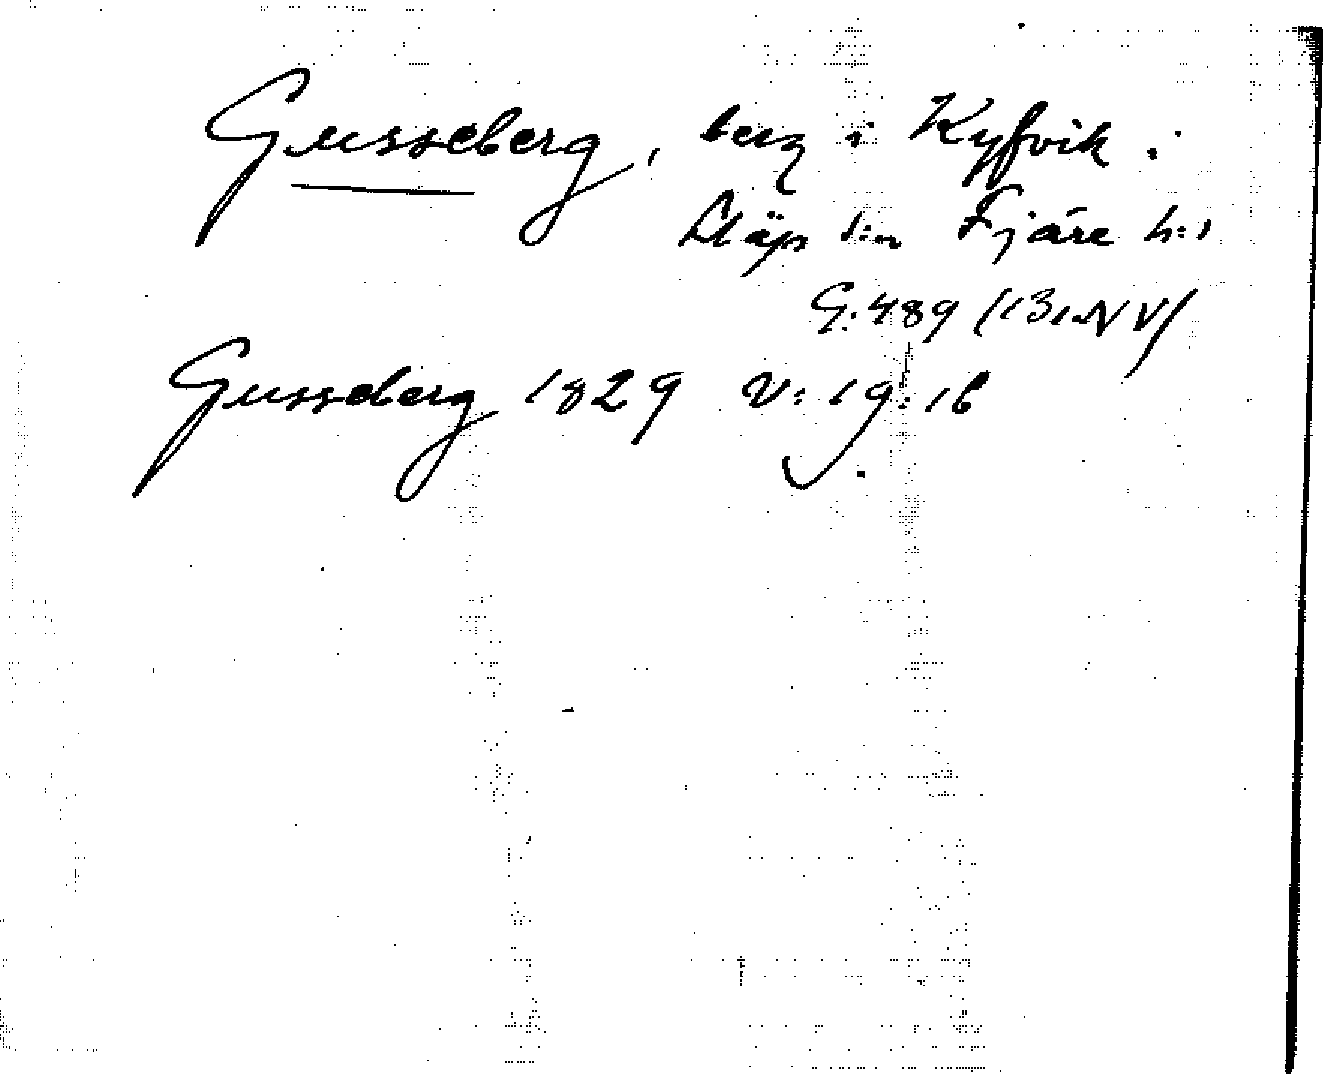 Gusseberg, berg i Kyfvik i
Släps s:n Fjäre h:d
G. 489 (131 NV)
Gusseberg 1829 V: 19: 16